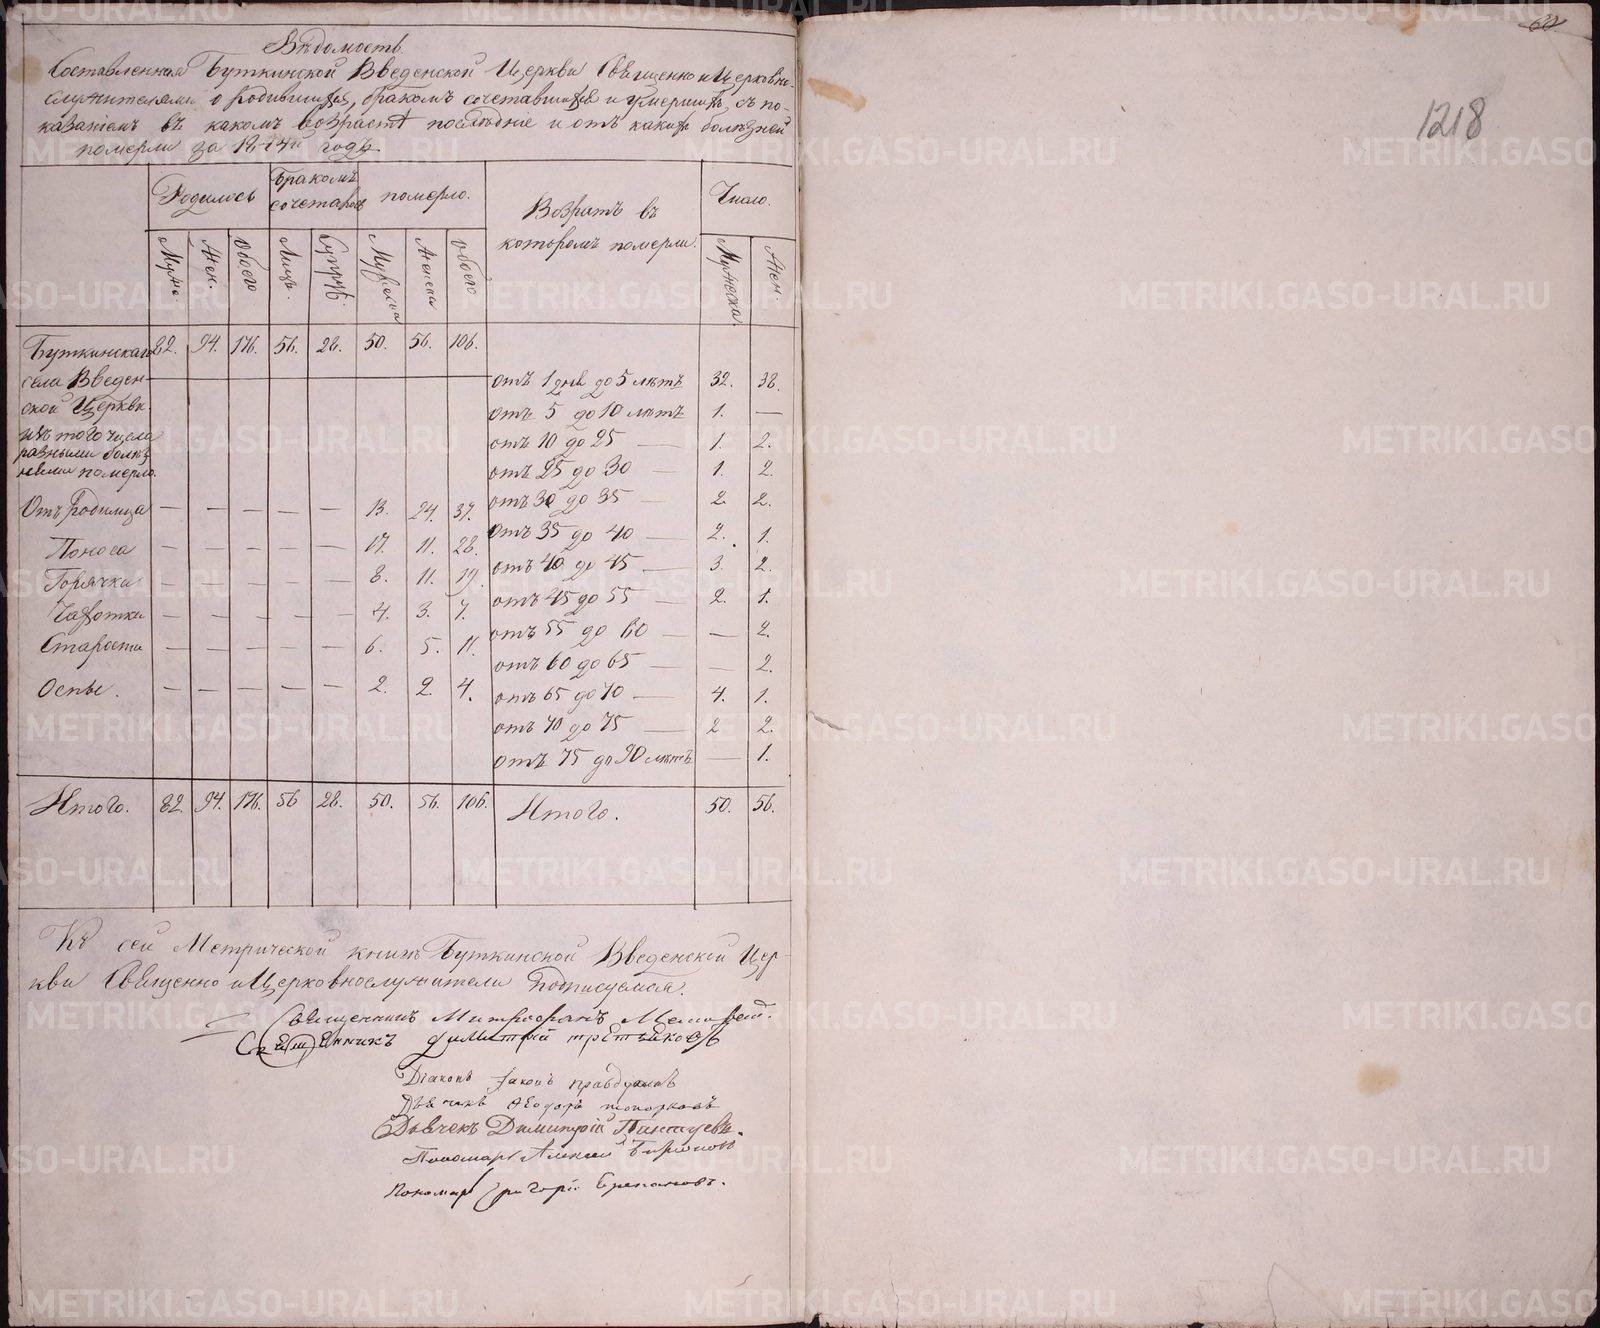 Вѣдомость
Составленная Буткинской Введенской Церкви Священно и Церковно-
служителями о родившихся, бракомъ сочетавшихся и умершихъ, съ по-
казаніемъ въ какомъ возрастѣ последніе и отъ какихъ болѣзней
померли за годъ
Родилось Бракомъ сочетавш померло. Возрастъ въ которомъ померли. Число.
Мужс. Жен. Обоего Лицъ. Супруж. Мужеска Женска Обоего Мужеска. Жен.
Буткинскаго 82. 94. 176. 56. 28. 50. 56. 106.
села Введен- отъ 1 дня до 5 лѣтъ 32. 38.
ской Церкви. отъ 5 до 10 лѣтъ 1. —
изъ того числа отъ 10 до 25 — 1. 2.
разными болѣз
нями померло. отъ 25 до 30 — 1. 2.
Отъ Родимца — — — — — 13. 24. 37. отъ 30 до 35 — 2. 2.
Поноса — — — — — 17. 11. 28. отъ 35 до 40 — 2. 1.
Горячки — — — — — 8. 11. 19. отъ 40 до 45 — 3. 2.
Чахотки — — — — — 4. 3. 7. отъ 45 до 55 — 2. 1.
Старости — — — — — 6. 5. 11. отъ 55 до 60 — — 2.
отъ 60 до 65 — — 2.
Оспы. — — — — — 2. 2. 4. отъ 65 до 70 — 4. 1.
отъ 70 до 75 — 2 2.
отъ 75 до 90 лѣтъ — 1.
Итого. 82. 94. 176. 56 28. 50. 56. 106. Итого. 50. 56.
Къ сей Метрической книгѣ Буткинской Введенской Цер-
кви Священно и Церковнослужители Подписуемся.
Священникъ Митрофанъ
Священникъ димитрій третьяковъ
Діаконъ Іаковъ правдухинъ
Дьячекъ Ѳеодоръ топорковъ
Дьячекъ Димитрій
Пономарь Алексій
Пономарь Григорій
1218
METRIKI.GASO-URAL.RU